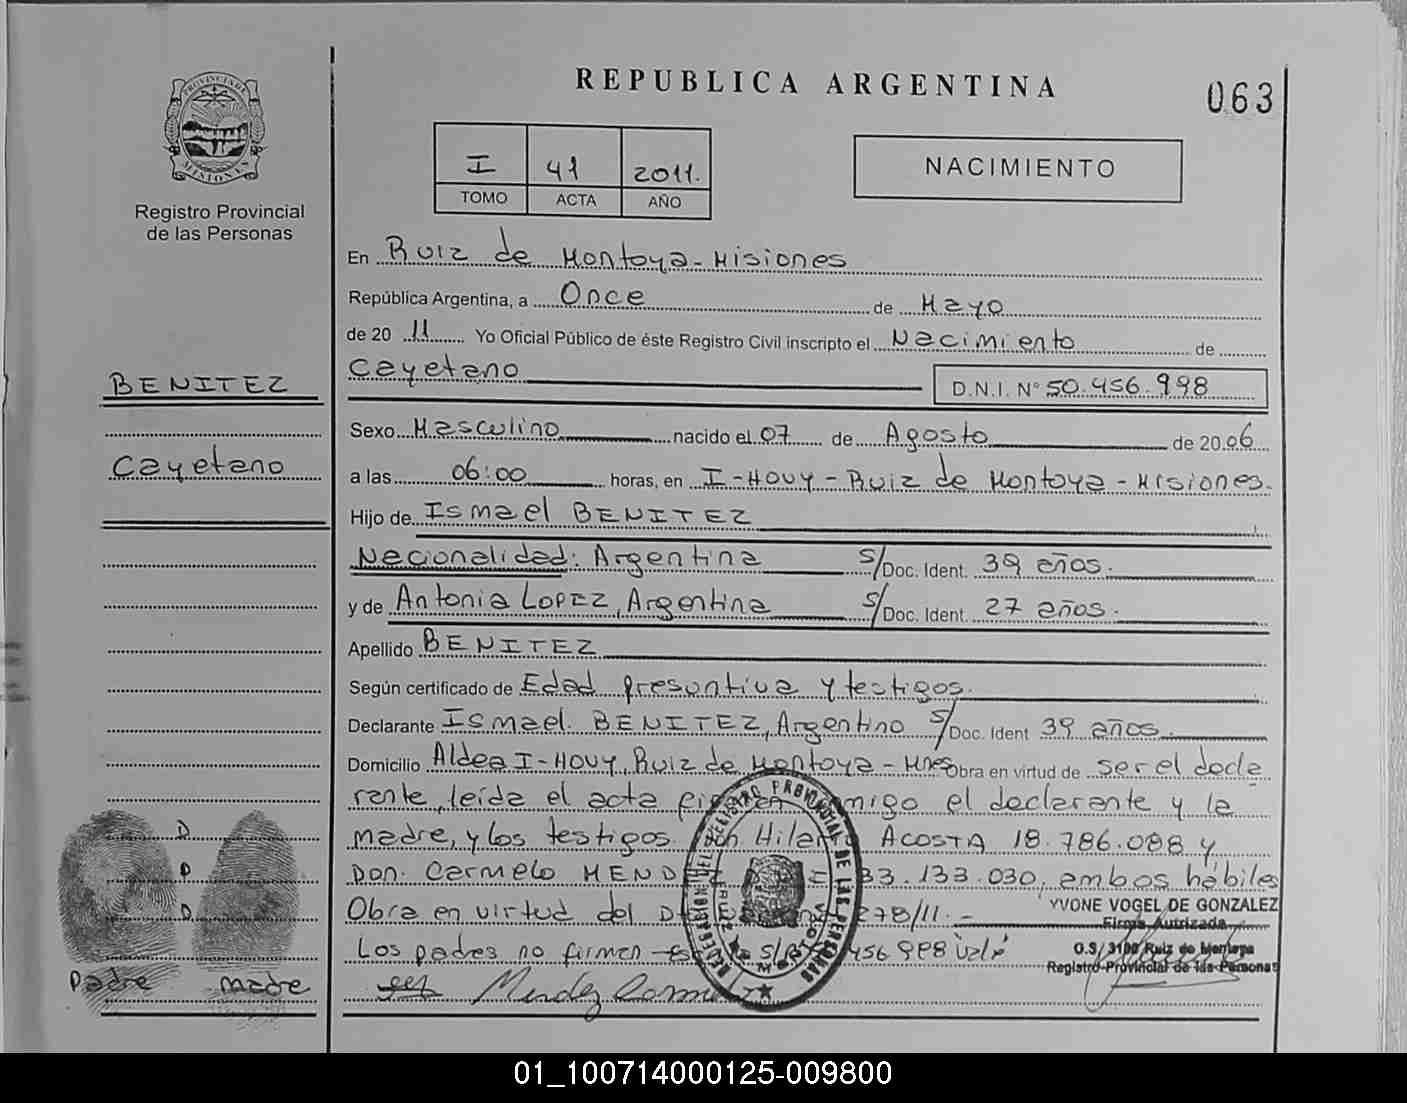 REPUBLICA ARGENTINA
063
PROVINCIA DE
MISIONES
Registro Provincial
de las Personas
I 41 2011.
TOMO ACTA AÑO
NACIMIENTO
En Ruiz de Montoya - Misiones
República Argentina, a Once de Mayo
de 20 11 Yo Oficial Público de éste Registro Civil inscripto el Nacimiento de
Cayetano D.N.I. N° 50.456.998
BENITEZ
Cayetano
Sexo Masculino nacido el 07 de Agosto de 2006
a las 06:00 horas, en I-HOVY - Ruiz de Montoya - Misiones.
Hijo de Ismael BENITEZ
Nacionalidad: Argentina S/Doc. Ident. 39 años.
y de Antonia LOPEZ, Argentina S/Doc. Ident. 27 años.
Apellido BENITEZ
Según certificado de Edad presuntiva y testigos.
Declarante Ismael BENITEZ, Argentino S/Doc. Ident 39 años.
Domicilio Aldea I-HOVY, Ruiz de Montoya - Mnes Obra en virtud de ser el decla
rante, leída el acta conmigo el declarante y la
madre, y los testigos. Don ACOSTA 18.786.088 y
Don. Carmelo 33.133.030, ambos hábiles
Obra en virtud del 278/11. -
Los padres no firman
D
D
D
Padre madre
REGISTRO PROVINCIAL DE LAS PERSONAS
YVONE VOGEL DE GONZALEZ
Firma Autrizada
O.S. 3100 Ruiz de Montoya
Registro Provincial de las Personas
01_100714000125-009800